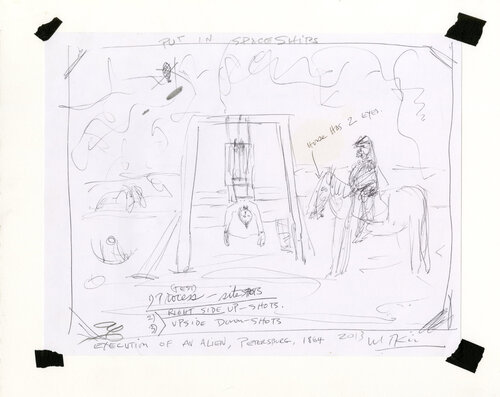 PUT IN SPACESHIPS
HORSE HAS 2 EYES.
(TEST)
1) PROCESS - SITE SHOTS
2) RIGHT SIDE UP - SHOTS.
3) UPSIDE DOWN - SHOTS
EXECUTION OF AN ALIEN, PETERSBURG, 1864 2013